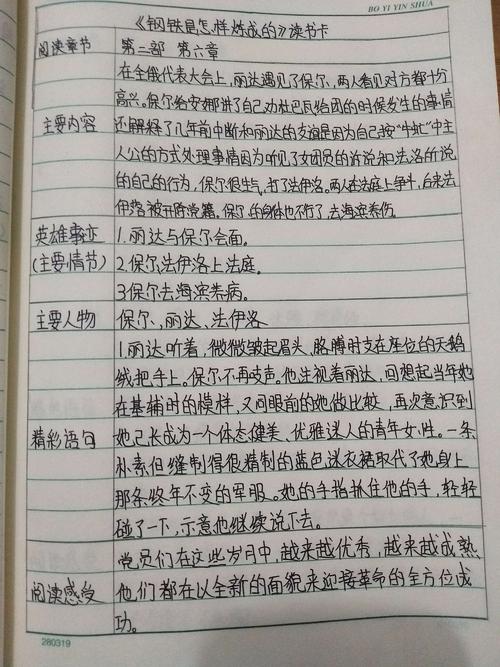 BO YI YIN SHUA
《钢铁是怎样炼成的》读书卡
阅读章节 第二部 第六章
在全俄代表大会上,丽达遇见了保尔,两人看见对方都十分
高兴。保尔给安娜讲了自己劝杜巴瓦给团的时候发生的事情
还解释了几年前中断和丽达的友谊是因为自己按“牛虻”中主
主要内容 人公的方式处理事情因为听见了女团员的诉说和法洛所说
的自己的行为,保尔很生气,打了法伊洛。两人在法庭上争斗,后来法
伊洛被开除党籍。保尔的身体也不行了,去海滨养伤。
英雄事迹 1.丽达与保尔会面。
(主要情节) 2.保尔,法伊洛上法庭。
3.保尔去海滨养病。
主要人物 保尔、丽达、法伊洛
1.丽达听着,微微皱起眉头,胳膊肘支在座位的天鹅
绒把手上。保尔不再吱声。他注视着丽达,回想起当年她
在基辅时的模样,又同眼前的她做比较,再次意识到
精彩语句 她已长成为一个体态健美、优雅迷人的青年女性。一条
朴素但缝制得很精制的蓝色迷衣裙取代了她身上
那条终年不变的军服。她的手指抓住他的手,轻轻
碰了一下,示意他继续说下去。
党员们在这些岁月中,越来越优秀,越来越成熟
阅读感受 他们都在以全新的面貌来迎接革命的全方位成
功。
280319